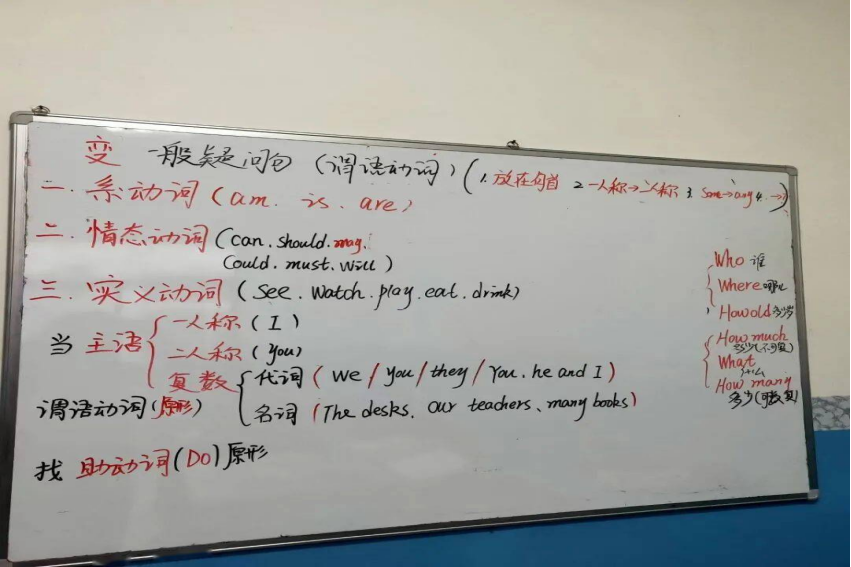 变 一般疑问句 (谓语动词) (1.放在句首 2.一人称→二人称 3. some→any 4. . →?)
一. 系动词 (am. is. are)
二. 情态动词 (can. should. may.
could. must. will)
三. 实义动词 (see. watch. play. eat. drink)
当 主语 { 一人称 (I)
二人称 (you)
复数 { 代词 (we / you / they / You, he and I)
名词 (The desks. Our teachers、many books)
谓语动词 (原形)
找 助动词 (Do) 原形
Who 谁
Where 哪里
How old 多少岁
How much
多少(不可数)
What
什么
How many
多少(可数复)